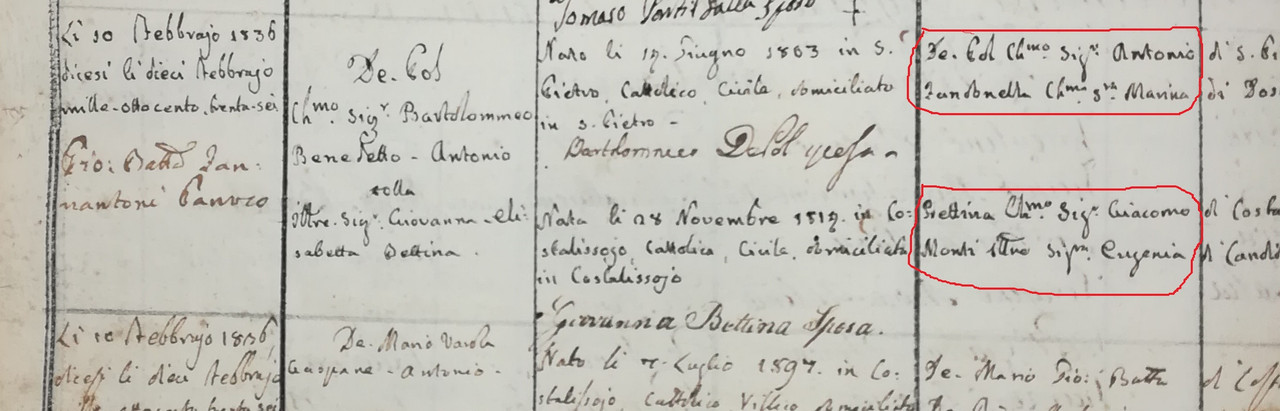 Tomaso
Li 10 Febbrajo 1836
dicesi li dieci Febbrajo
mille-ottocento, trenta-sei
Gio: Batt
De. Col
Chmo Sigr Bartolommeo
Benedetto - Antonio
colla
Sigr. Giovanna - Eli:
sabetta Bettina.
Nato li 17. Giugno 1803 in S.
Pietro, Cattolico, Civile, domiciliato
in S. Pietro -
Bartolommeo DeCol
Nata li 28 Novembre 1817. in Co:
stalissojo, Cattolica, Civile, domiciliata
in Costalissojo
Giovanna Bettina Sposa.
De. Col Chmo Sigr. Antonio
Zandonella Chma Sra Marina
Bettina Chmo Sigr. Giacomo
Monti Sigra. Eugenia
di S. Pi
di Dos
di Costa
di Candi
Li 10 Febbrajo 1836,
dicesi li dieci Febbrajo
De. Mario Varola
Gaspare - Antonio -
Nato li Luglio in Co:
stalissojo, Cattolico, Villico domiciliato
De. Mario Gio: Batta
di Cost